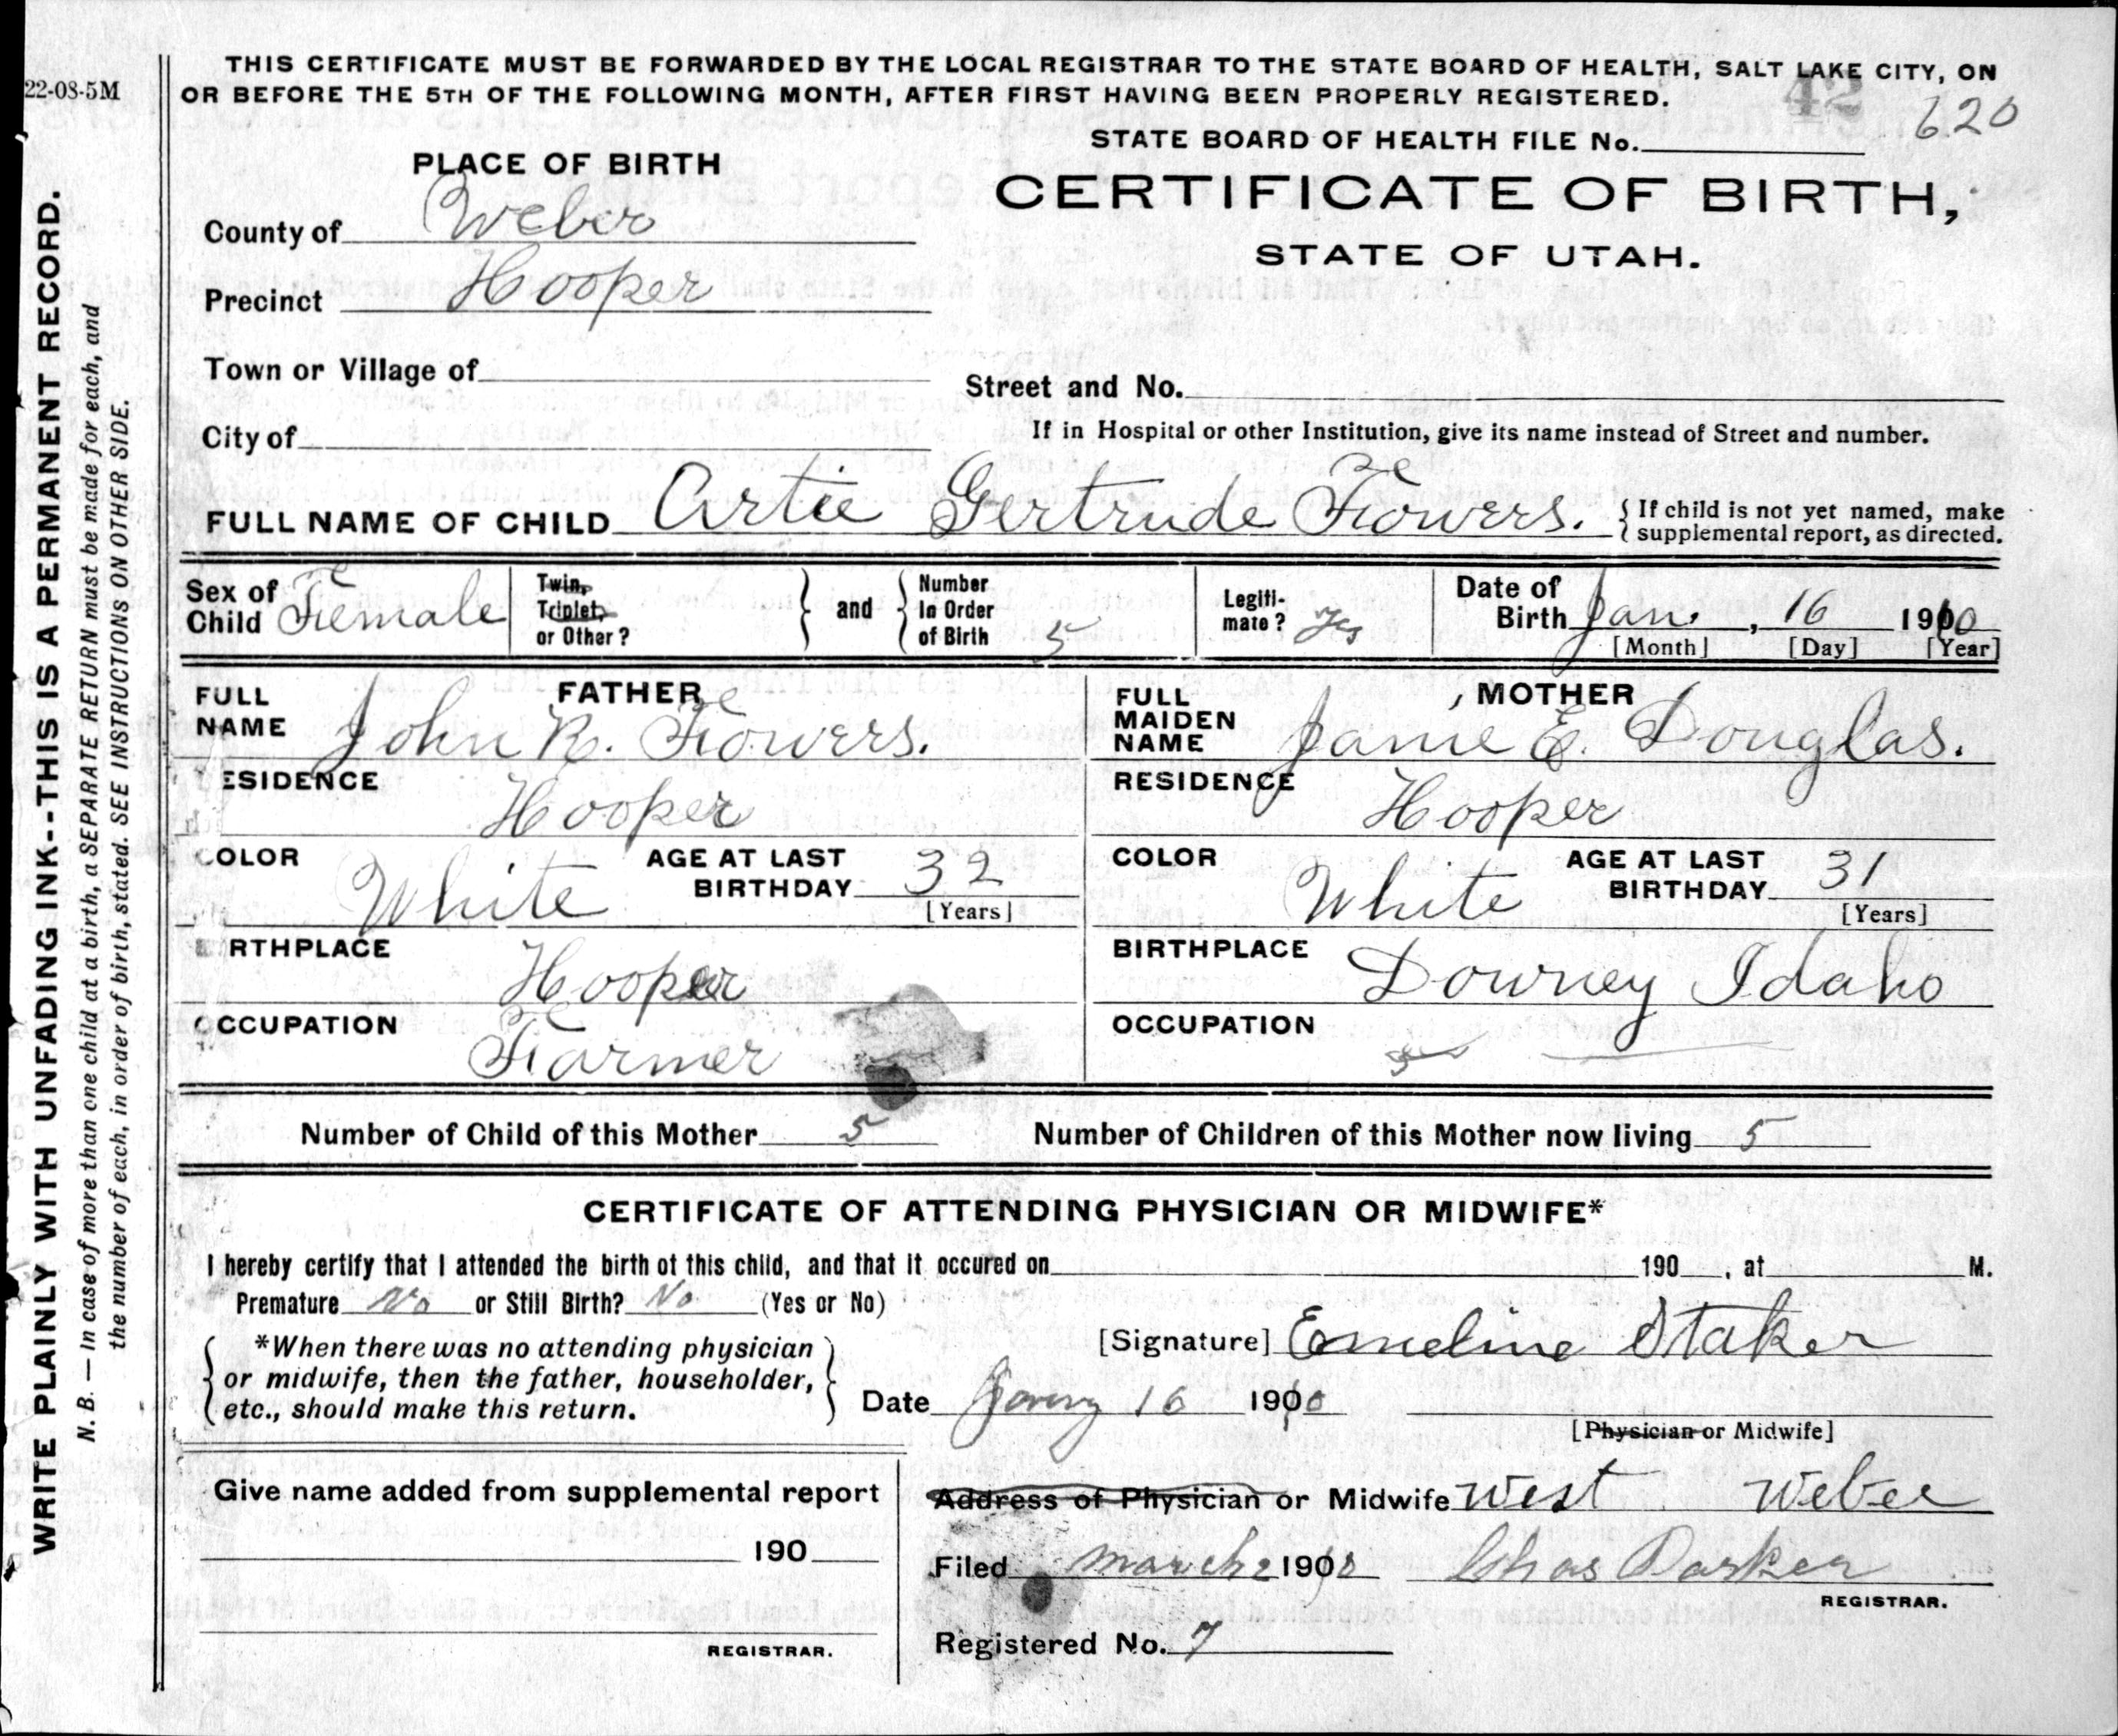 22-08-5M
THIS CERTIFICATE MUST BE FORWARDED BY THE LOCAL REGISTRAR TO THE STATE BOARD OF HEALTH, SALT LAKE CITY, ON
OR BEFORE THE 5TH OF THE FOLLOWING MONTH, AFTER FIRST HAVING BEEN PROPERLY REGISTERED.
42
620
STATE BOARD OF HEALTH FILE No.
CERTIFICATE OF BIRTH,
STATE OF UTAH.
PLACE OF BIRTH
County of Weber
Precinct Hooper
Town or Village of
Street and No.
City of
If in Hospital or other Institution, give its name instead of Street and number.
FULL NAME OF CHILD Artie Gertrude Fowers. { If child is not yet named, make
supplemental report, as directed.
Sex of Child Female
Twin, Triplet, or Other?
and
Number In Order of Birth 5
Legiti-mate? Yes
Date of Birth Jan. , 16 1910
[Month] [Day] [Year]
FATHER
FULL NAME John R. Fowers.
ESIDENCE Hooper
COLOR White AGE AT LAST BIRTHDAY 32
[Years]
RTHPLACE Hooper
OCCUPATION Farmer
MOTHER
FULL MAIDEN NAME Janie E. Douglas.
RESIDENCE Hooper
COLOR White AGE AT LAST BIRTHDAY 31
[Years]
BIRTHPLACE Downey Idaho
OCCUPATION
Number of Child of this Mother 5 Number of Children of this Mother now living 5
CERTIFICATE OF ATTENDING PHYSICIAN OR MIDWIFE*
I hereby certify that I attended the birth of this child, and that it occured on 190 , at M.
Premature No or Still Birth? No (Yes or No)
*When there was no attending physician
or midwife, then the father, householder,
etc., should make this return.
[Signature] Emeline Staker
Date 16 1910
[Physician or Midwife]
Give name added from supplemental report
190
REGISTRAR.
Address of Physician or Midwife West Weber
Filed March 2 1910 Chas Parker
REGISTRAR.
Registered No. 7
WRITE PLAINLY WITH UNFADING INK--THIS IS A PERMANENT RECORD.
N. B. — In case of more than one child at a birth, a SEPARATE RETURN must be made for each, and
the number of each, in order of birth, stated. SEE INSTRUCTIONS ON OTHER SIDE.